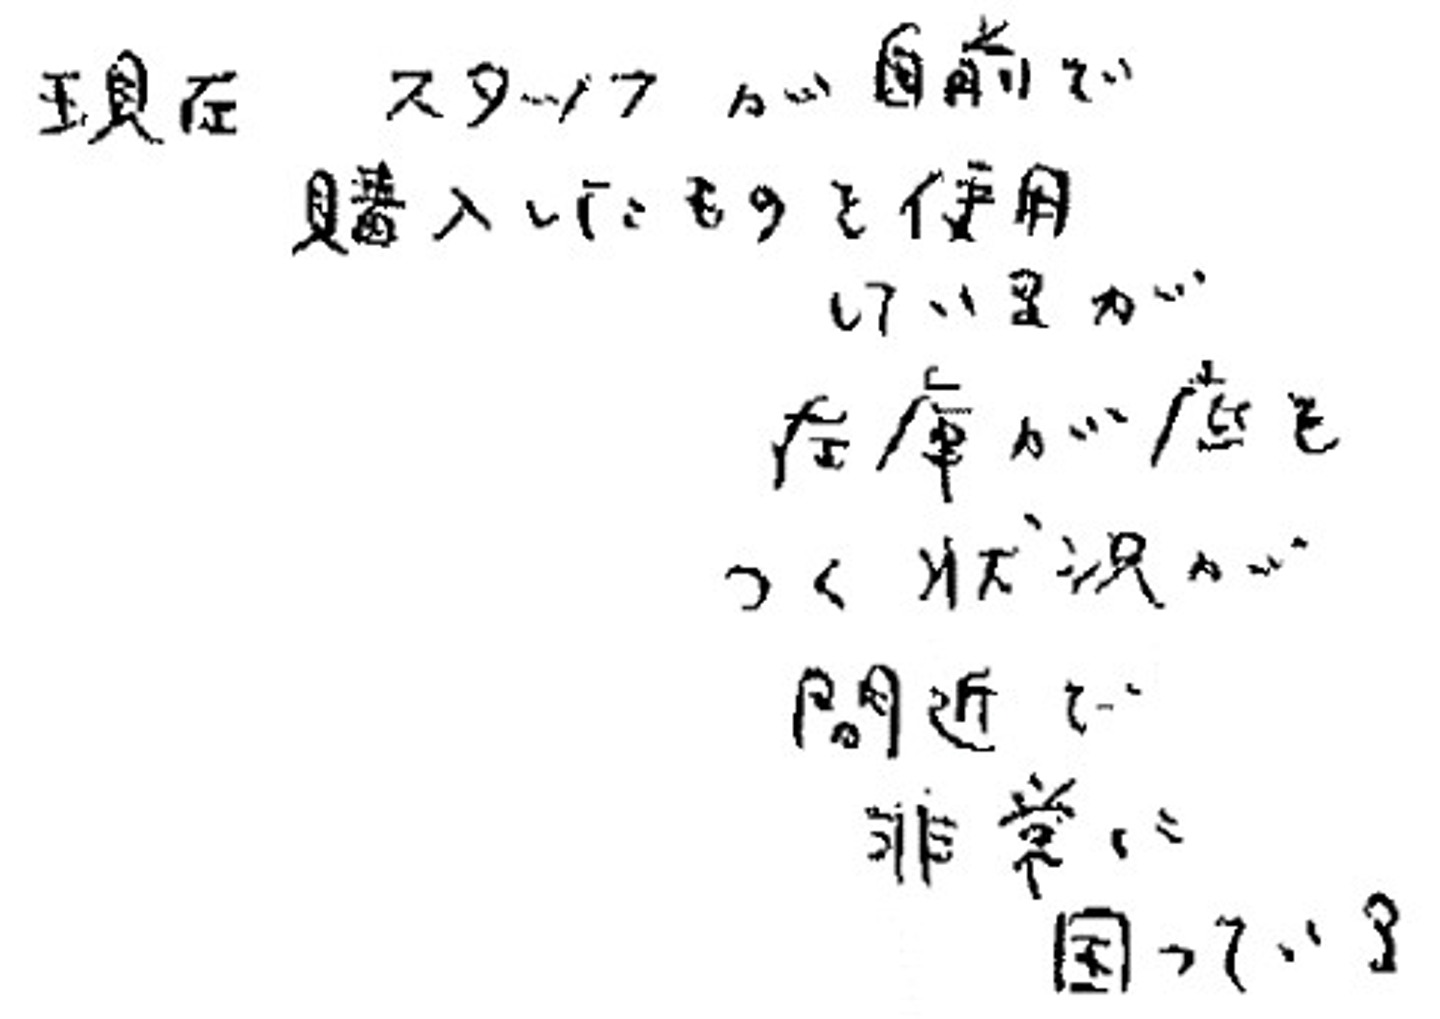 現在 スタッフが自前で
購入したものを使用
しているが
在庫が底を
つく状況が
間近で
非常に
困っている